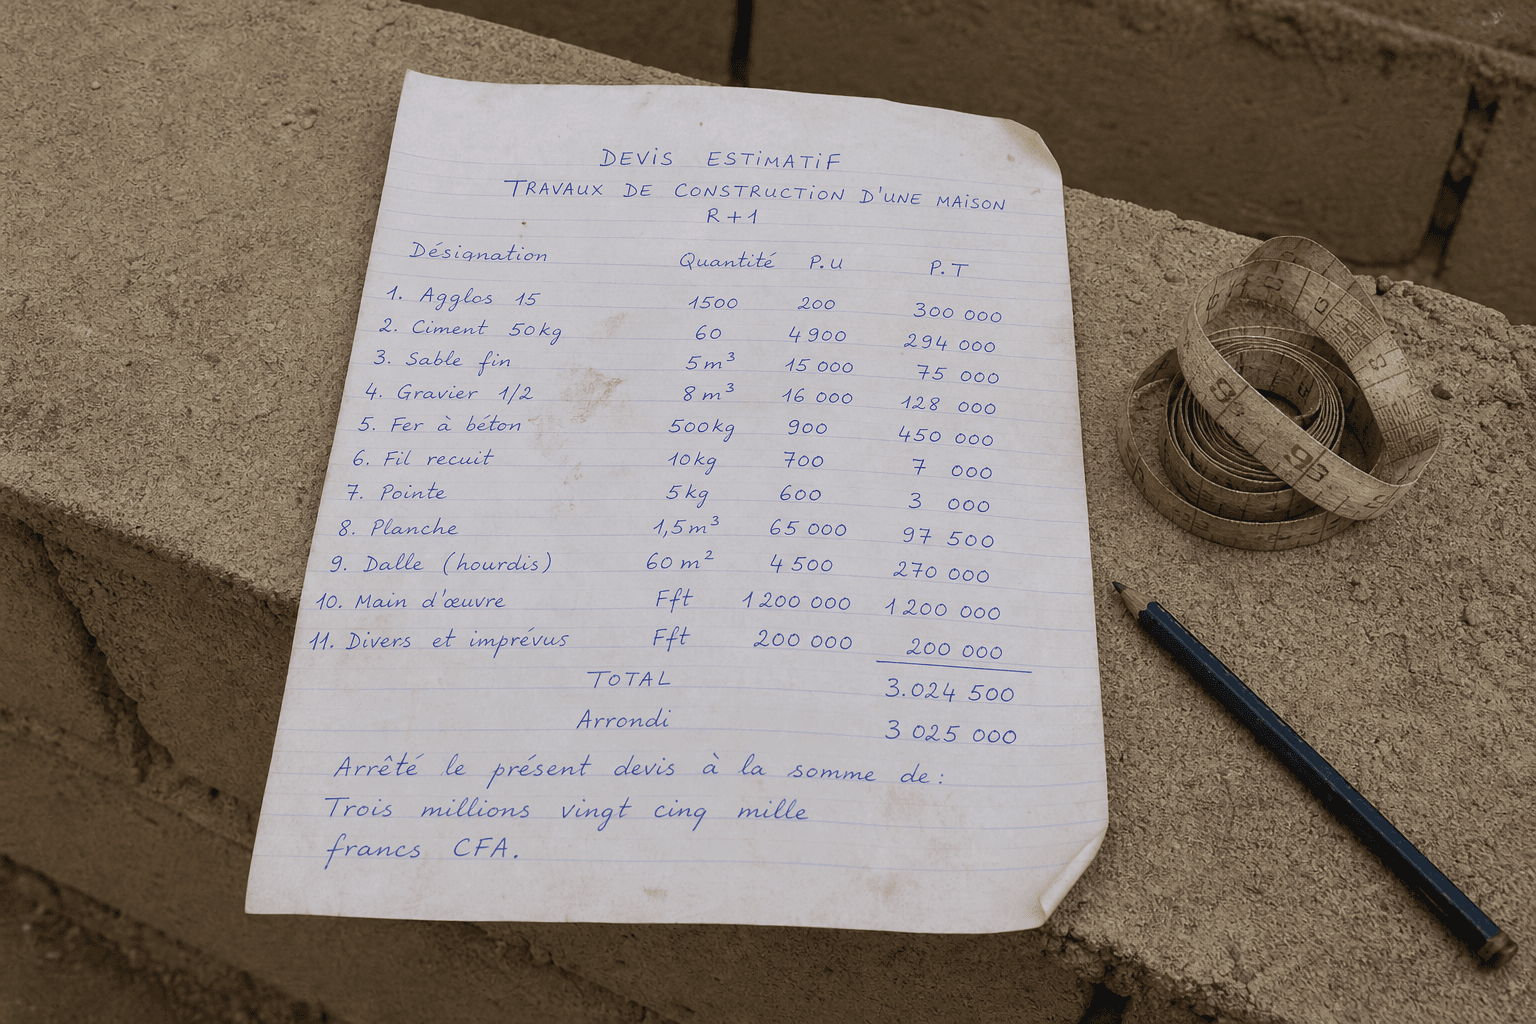 DEVIS ESTIMATIF
TRAVAUX DE CONSTRUCTION D'UNE MAISON
R+1
Désignation Quantité P.U P.T
1. Agglos 15 1500 200 300 000
2. Ciment 50kg 60 4 900 294 000
3. Sable fin 5m³ 15 000 75 000
4. Gravier 1/2 8m³ 16 000 128 000
5. Fer à béton 500kg 900 450 000
6. Fil recuit 10kg 700 7 000
7. Pointe 5kg 600 3 000
8. Planche 1,5m³ 65 000 97 500
9. Dalle (hourdis) 60 m² 4 500 270 000
10. Main d'œuvre Fft 1 200 000 1 200 000
11. Divers et imprévus Fft 200 000 200 000
TOTAL 3.024 500
Arrondi 3 025 000
Arrêté le présent devis à la somme de:
Trois millions vingt cinq mille
francs CFA.